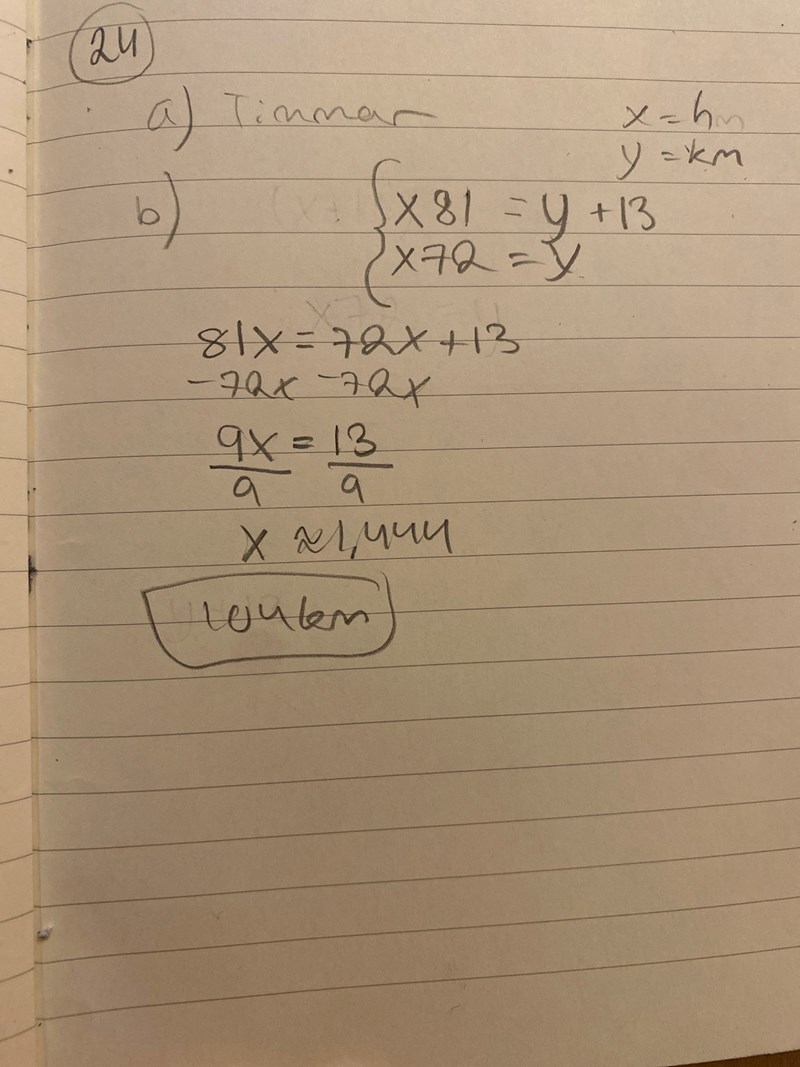 24
a) Timmar
x = h
y = km
b)
x81 = y + 13
x72 = y
81x = 72x + 13
-72x -72x
9x = 13
9 9
x ≈ 1,444
104km